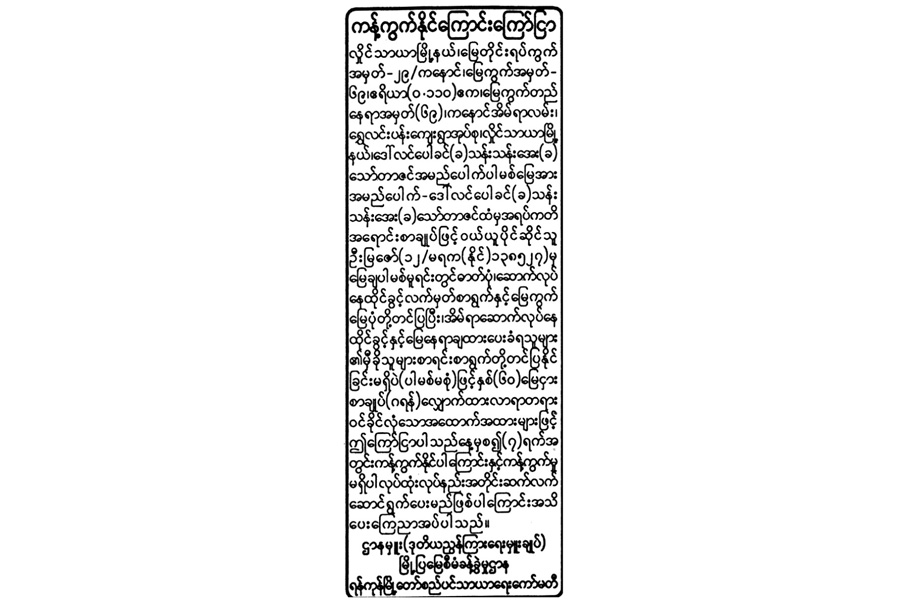 ကန့်ကွက်နိုင်ကြောင်းကြော်ငြာ
လှိုင်သာယာမြို့နယ်၊မြေတိုင်းရပ်ကွက်
အမှတ်-၂၉/ကနောင်၊မြေကွက်အမှတ်-
၆၉၊ဧရိယာ(၀.၁၁၀)ဧက၊မြေကွက်တည်
နေရာအမှတ်(၆၉)၊ကနောင်အိမ်ရာလမ်း၊
ရွှေလင်းပန်းကျေးရွာအုပ်စု၊လှိုင်သာယာမြို့
နယ်၊ဒေါ်လင်ပေါ်ခင်(ခ)သန်းသန်းအေး(ခ)
သော်တာဇင်အမည်ပေါက်ပါမစ်မြေအား
အမည်ပေါက်-ဒေါ်လင်ပေါ်ခင်(ခ)သန်း
သန်းအေး(ခ)သော်တာဇင်ထံမှအရပ်ကတိ
အရောင်းစာချုပ်ဖြင့်ဝယ်ယူပိုင်ဆိုင်သူ
ဦးမြဇော်(၁၂/မရက(နိုင်)၁၃၈၅၂၇)မှ
မြေချပါမစ်မူရင်းတွင်ဓာတ်ပုံ၊ဆောက်လုပ်
နေထိုင်ခွင့်လက်မှတ်စာရွက်နှင့်မြေကွက်
မြေပုံတို့တင်ပြပြီး၊အိမ်ရာဆောက်လုပ်နေ
ထိုင်ခွင့်နှင့်မြေနေရာချထားပေးခံရသူများ
၏မှီခိုသူများစာရင်းစာရွက်တို့တင်ပြနိုင်
ခြင်းမရှိပဲ(ပါမစ်မစုံ)ဖြင့်နှစ်(၆၀)မြေငှား
စာချုပ်(ဂရန်)လျှောက်ထားလာရာတရား
ဝင်ခိုင်လုံသောအထောက်အထားများဖြင့်
ဤကြော်ငြာပါသည့်နေ့မှစ၍(၇)ရက်အ
တွင်းကန့်ကွက်နိုင်ပါကြောင်းနှင့်ကန့်ကွက်မှု
မရှိပါလုပ်ထုံးလုပ်နည်းအတိုင်းဆက်လက်
ဆောင်ရွက်ပေးမည်ဖြစ်ပါကြောင်းအသိ
ပေးကြေညာအပ်ပါသည်။
ဌာနမှူး(ဒုတိယညွှန်ကြားရေးမှူးချုပ်)
မြို့ပြမြေစီမံခန့်ခွဲမှုဌာန
ရန်ကုန်မြို့တော်စည်ပင်သာယာရေးကော်မတီ